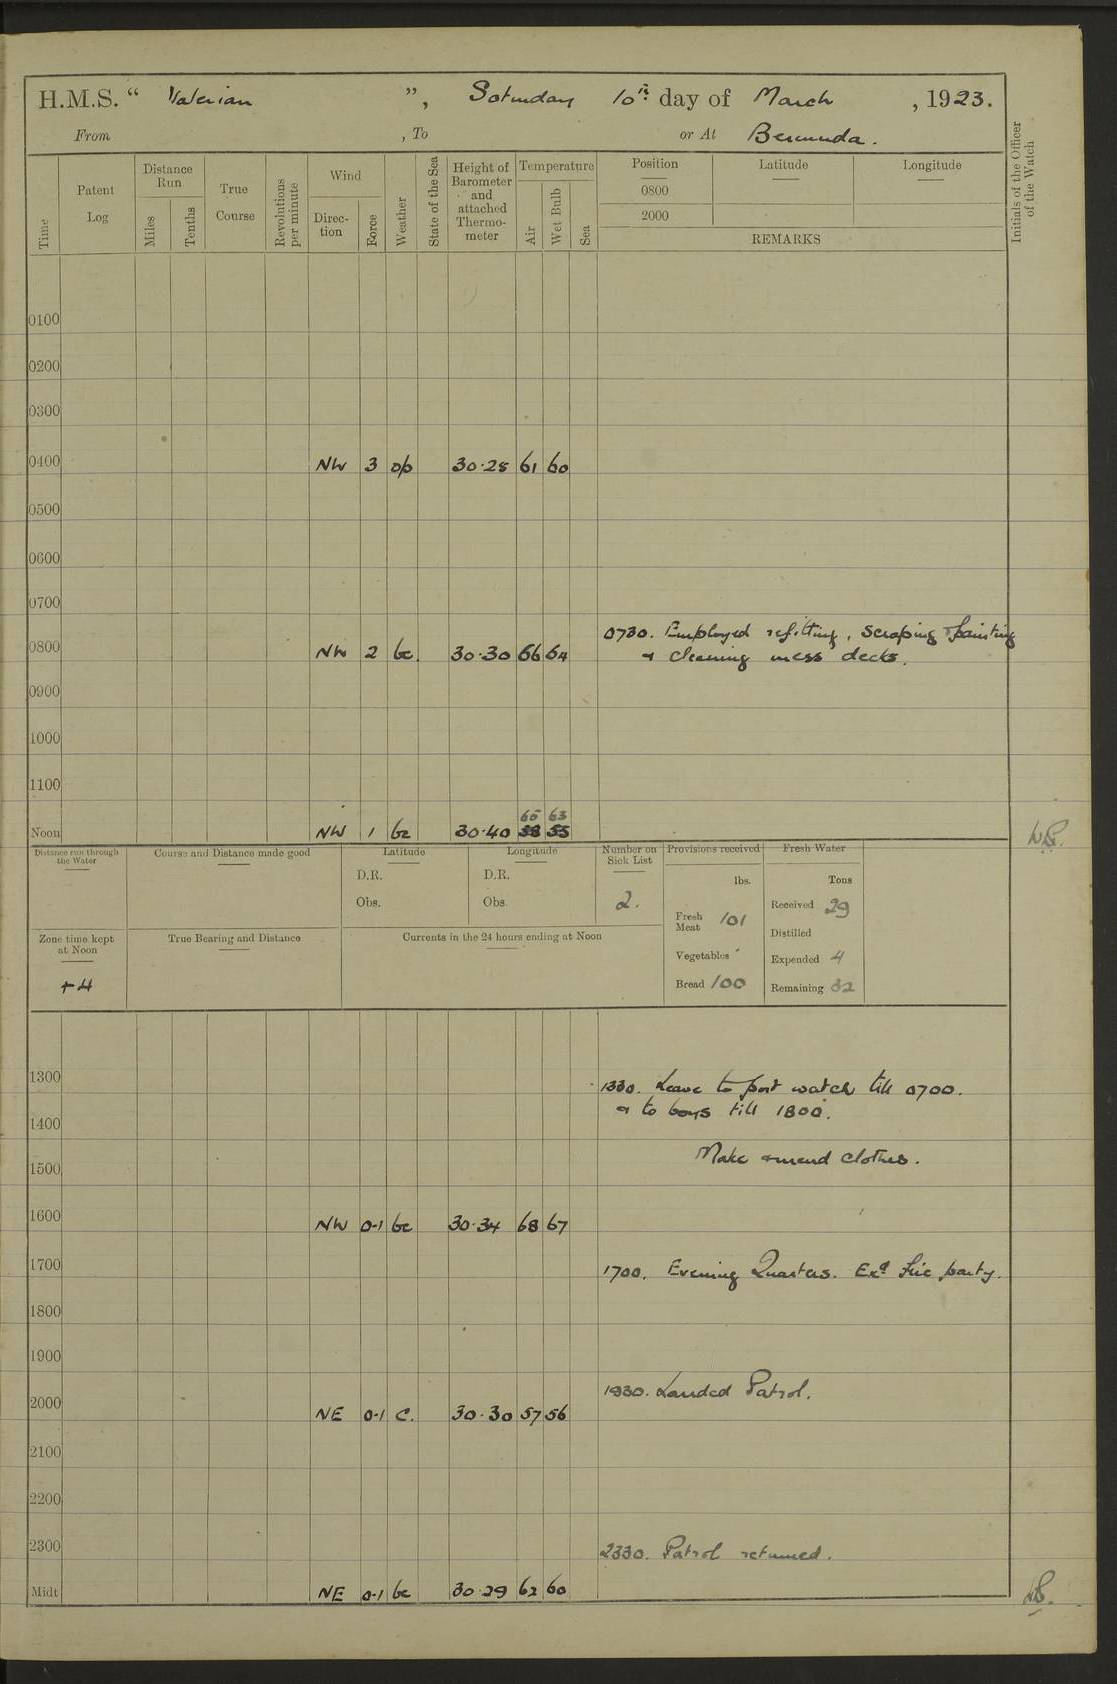 H.M.S. “ Valerian ”, Saturday 10th day of March , 1923.
From , To or At Bermuda.
Time
Patent Log
Distance Run
Miles
Tenths
True Course
Revolutions per minute
Wind
Direc-tion
Force
Weather
State of the Sea
Height of Barometer and attached Thermo-meter
Temperature
Air
Wet Bulb
Sea
Position Latitude Longitude
0800
2000
REMARKS
Initials of the Officer of the Watch
0100
0200
0300
0400 NW 3 op 30.28 61 60
0500
0600
0700
0730. Employed refitting, scraping & painting
0800 NW 2 bc. 30.30 66 64 & cleaning mess decks.
0900
1000
1100
65 63
Noon NW 1 bc 30.40 58 55
Distance run through the Water
Course and Distance made good
Latitude
D.R.
Obs.
Longitude
D.R.
Obs.
Number on Sick List
2.
Provisions received
lbs.
Fresh Meat 101
Vegetables
Bread 100
Fresh Water
Tons
Received 29
Distilled
Expended 4
Remaining 82
Zone time kept at Noon
+4
True Bearing and Distance
Currents in the 24 hours ending at Noon
1300
1330. Leave to port watch till 0700.
& to boys till 1800.
1400
Make & mend clothes.
1500
1600 NW 0-1 bc 30.34 68 67
1700 1700. Evening Quarters. Exd fire party.
1800
1900
1930. Landed Patrol.
2000 NE 0-1 c. 30.30 57 56
2100
2200
2300
2330. Patrol returned.
Midt NE 0-1 bc 30.29 62 60